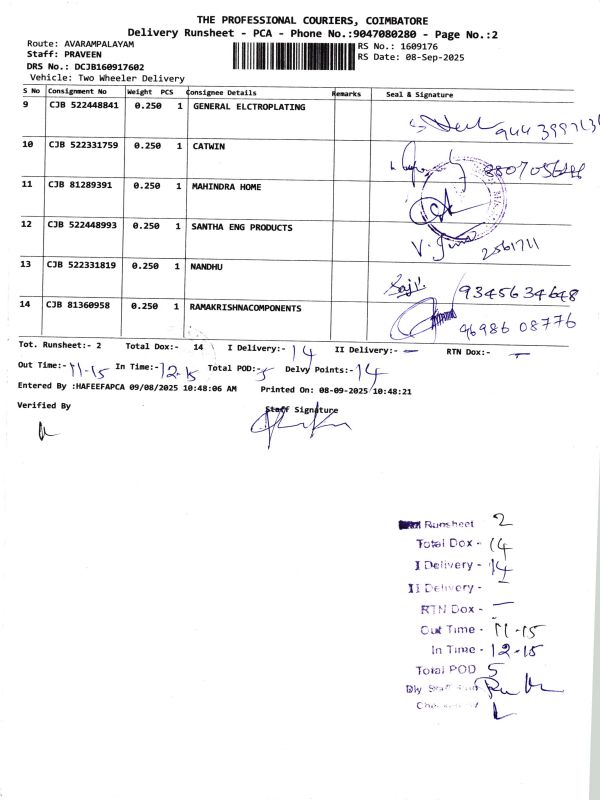 THE PROFESSIONAL COURIERS, COIMBATORE
Delivery Runsheet - PCA - Phone No.:9047080280 - Page No.:2
Route: AVARAMPALAYAM
RS No.: 1609176
Staff: PRAVEEN
RS Date: 08-Sep-2025
DRS No.: DCJB160917602
Vehicle: Two Wheeler Delivery
S No Consignment No Weight PCS Consignee Details Remarks Seal & Signature
9 CJB 522448841 0.250 1 GENERAL ELCTROPLATING
10 CJB 522331759 0.250 1 CATWIN
11 CJB 81289391 0.250 1 MAHINDRA HOME
12 CJB 522448993 0.250 1 SANTHA ENG PRODUCTS
2561711
13 CJB 522331819 0.250 1 NANDHU
9345634648
14 CJB 81360958 0.250 1 RAMAKRISHNACOMPONENTS
96986 08776
Tot. Runsheet:- 2 Total Dox:- 14 I Delivery:- 14 II Delivery:- — RTN Dox:- —
Out Time:- 11-15 In Time:- 12-15 Total POD:- 5 Delvy Points:- 14
Entered By :HAFEEFAPCA 09/08/2025 10:48:06 AM Printed On: 08-09-2025 10:48:21
Verified By Staff Signature
Runsheet 2
Total Dox - 14
I Delivery - 14
II Delivery -
RTN Dox - —
Out Time - 11-15
In Time - 12-15
Total POD 5
Dly Staff